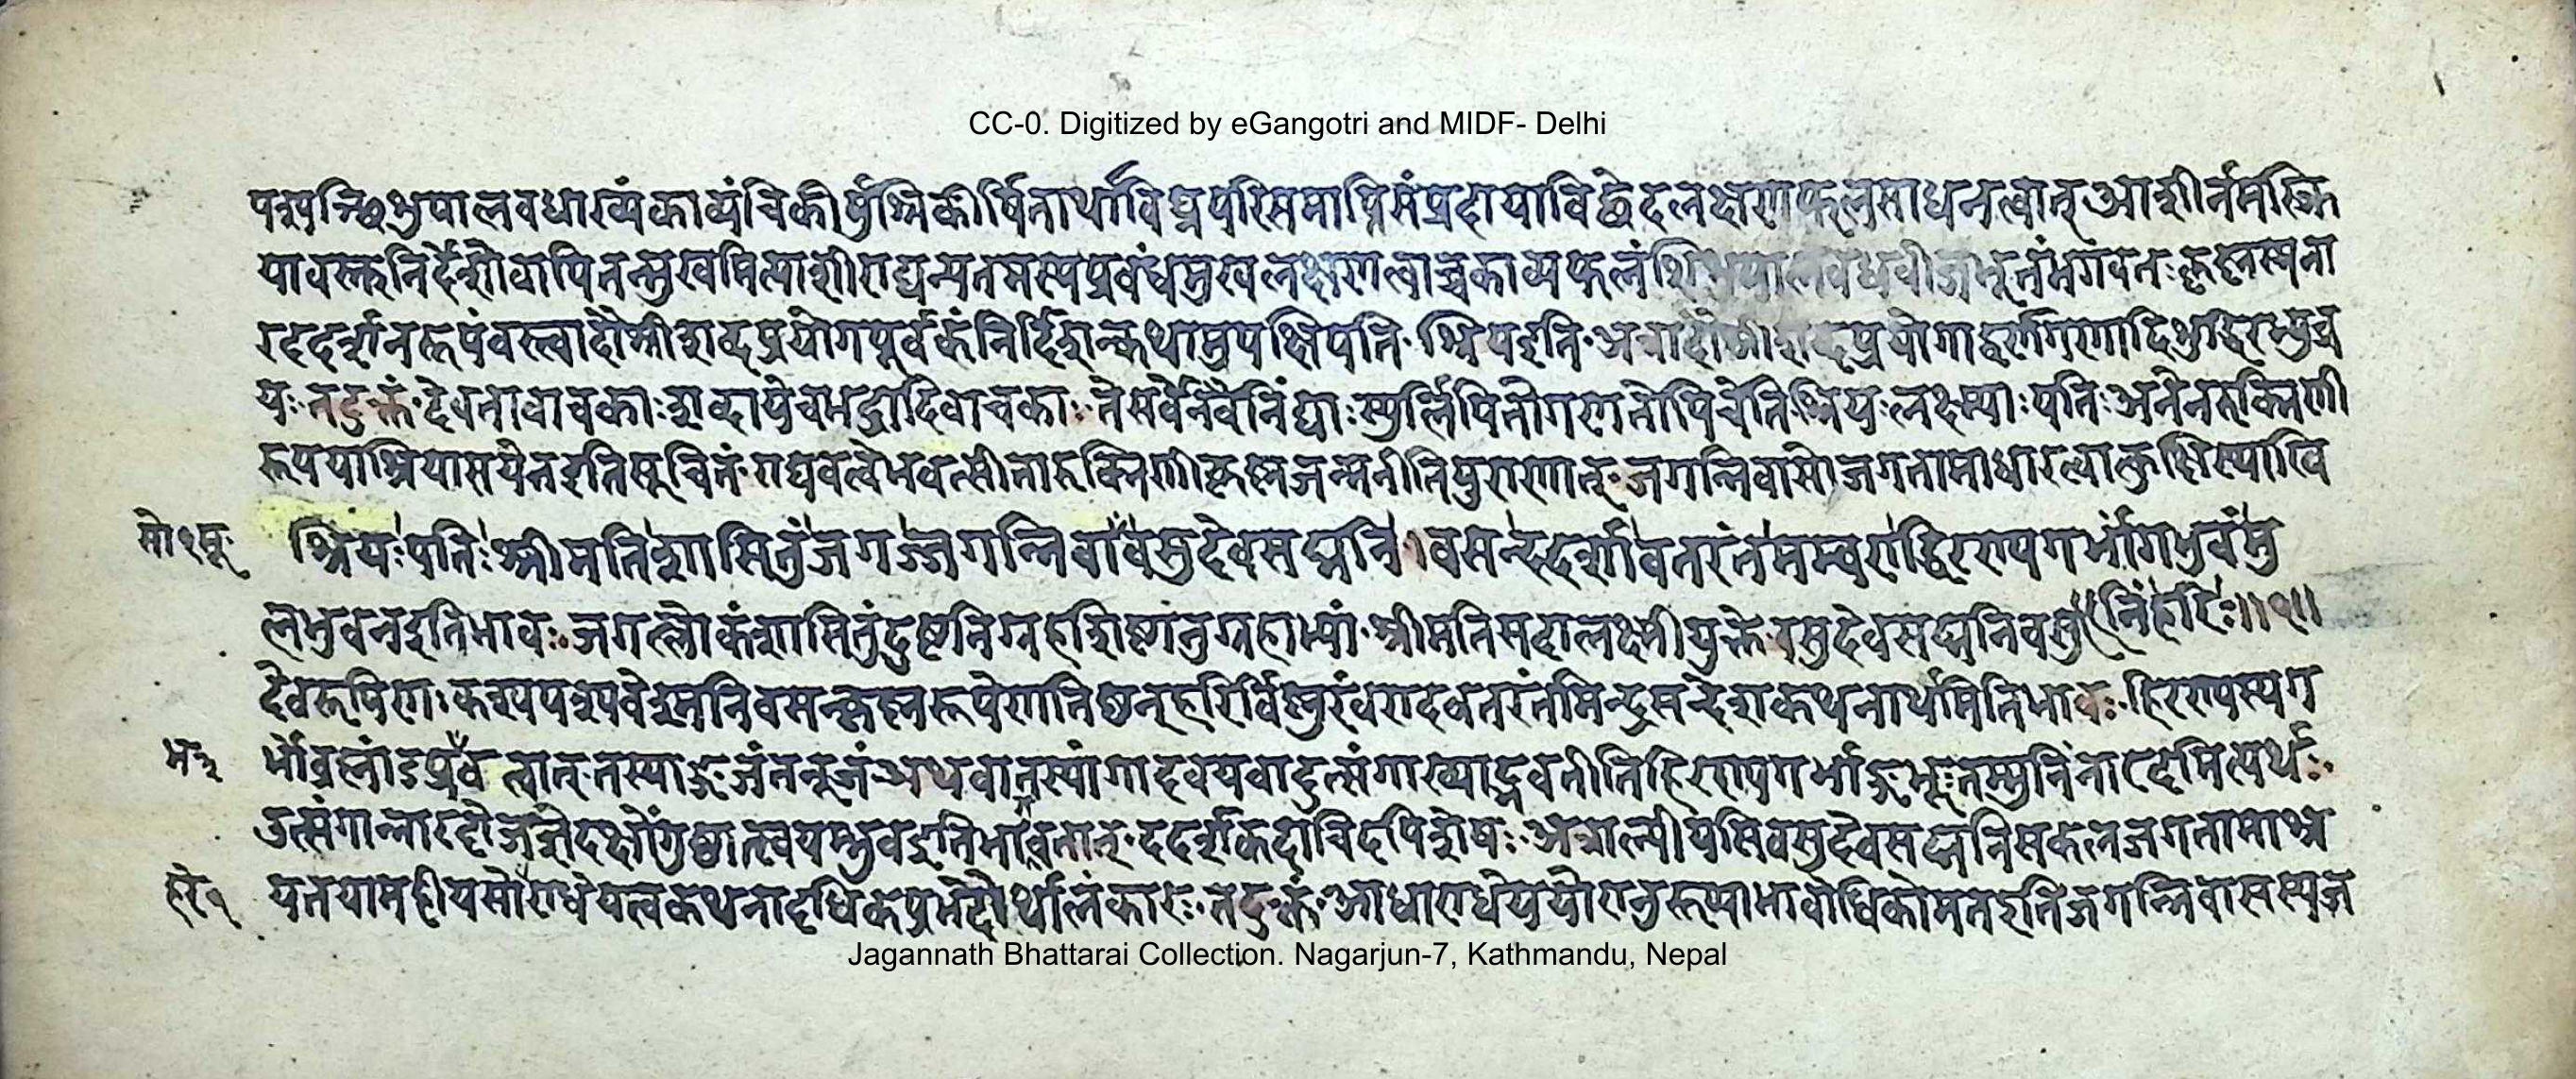 CC-0. Digitized by eGangotri and MIDF- Delhi
पश्यञ्शिशुपालवधाख्यं काव्यं चिकीर्षुश्चिकीर्षितार्थाविघ्नपरिसमाप्तिसंप्रदायाविछेदलक्षणफलसाधनत्वात् आशीर्नमस्क्रि
यावस्तुनिर्देशो वापि तन्मुखमित्याशीराद्यन्यतमस्य प्रबंधमुखलक्षणत्वाच्च काव्यफलं शिशुपालवधबीजभूतं भगवतः कृष्णस्य ना
रददर्शनरूपं वस्त्वादौ श्रीशब्दप्रयोगपूर्वकं निर्दिशन्कथामुपक्षिपति श्रिय इति अत्रादौ श्रीशब्दप्रयोगाद्वर्णगणादिशुद्धिरभ्युच्च
यः तदुक्तं देवतावाचकाः शब्दा ये च भद्रादिवाचकाः ते सर्वे नैव निंद्याः स्युर्लिपितो गणतोपि चेति श्रियः लक्ष्म्याः पतिः अनेन रुक्मिणी
रूपया श्रिया समेत इति सूचितं राघवत्वे भवत्सीता रुक्मिणी कृष्णजन्मनीति पुराणात् जगन्निवासो जगतामाधारत्वात्कुक्षिस्थाखि
श्रियः पतिः श्रीमति शासितुं जगज्जगन्निवा वसुदेवसद्मनि । वसन्ददर्शावतरंतमम्बराद्धिरण्यगर्भांगभुवं मु
निं हरिः ॥ १ ॥
लभुवन इति भावः जगल्लोकं शासितुं दुष्टनिग्रहशिष्टानुग्रहाभ्यां श्रीमति सदा लक्ष्मीयुक्ते वसुदेवसद्मनि वसु
देवरूपिणः कश्यपस्य वेश्मनि वसन्कृष्णरूपेण तिष्ठन् हरिर्विष्णुरंबरादवतरंतमिन्द्रसन्देशकथनार्थमिति भावः हिरण्यस्य ग
र्भो ब्रह्मांडप्रभवत्वात् तस्याङ्गजं तनूजं अथवा तस्यांगादवयवादुत्संगाख्याद्भवतीति हिरण्यगर्भाङ्गभूः तम्मुनिं नारदमित्यर्थः
उत्संगान्नारदो जज्ञे दक्षोंगुष्ठात्स्वयम्भुव इति भागवतात् ददर्श कदाचिदपि शेषः अत्राल्पीयसि वसुदेवसद्मनि सकलजगतामाश्र
यतया महीयसो राधेयत्वकथनादधिकप्रभेदोर्थालंकारः तदुक्तं आधाराधेययोरानुरूप्याभावोधिको मत इति जगन्निवासस्य ज
Jagannath Bhattarai Collection. Nagarjun-7, Kathmandu, Nepal